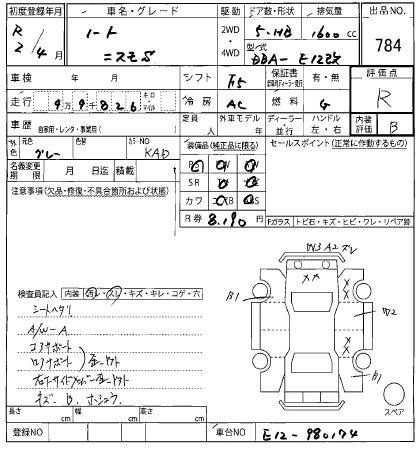 初度登録年月 車名・グレード 駆動 ドア数・形状 排気量 出品NO
R 2/4月 ノート 2WD 5・HB 1600 cc 784
ニスモS 4WD 型式 DBA- E12改
車検 年 月 シフト F5 保証書 有・無 評価点
走行 99826 キロ・マイル 冷房 AC 燃料 G R
車歴 自家用・レンタ・事業用( ) 定員 人 外車モデル 年 ディーラー・並行 ハンドル 左・右 内装評価 B
外色 元色 色替 カラーNO 装備品(純正品に限る) セールスポイント(正常に作動するもの)
グレー KAD PS AW PW
名義変更期限 月 日迄 積載 SR TV
注意事項(欠品・修復・不具合箇所および状態) カワ BS
R券 8,190
Fガラス トビ石・キズ・ヒビ・ワレ・リペア跡
W3 A2 ズレ
XX
B1
W2
B1
検査員記入 内装 汚レ・スレ・キズ・キレ・コゲ・穴
シートヘタリ
A/W-A
コアサポート
ロアサポート
キズ・B・ホシュウ
スペア
長さ cm 幅 cm 高さ cm
登録NO 車台NO E12-980174